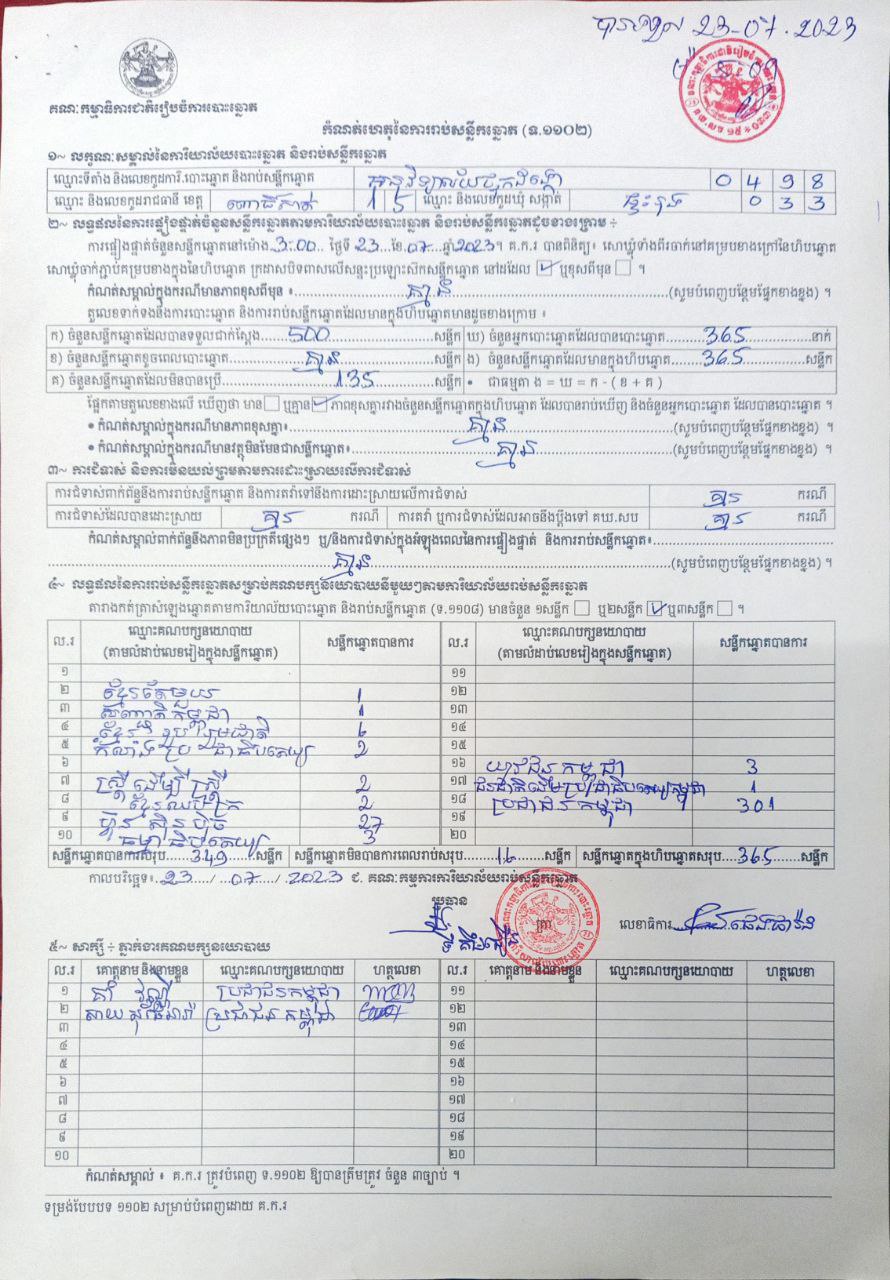 បានឃើញ 23-07-2023
គណៈកម្មាធិការជាតិរៀបចំការបោះឆ្នោត
កំណត់ហេតុនៃការរាប់សន្លឹកឆ្នោត (ទ.១១០២)
១~ លក្ខណៈសម្គាល់នៃការិយាល័យបោះឆ្នោត និងរាប់សន្លឹកឆ្នោត
ឈ្មោះទីតាំង និងលេខកូដការិ.បោះឆ្នោត និងរាប់សន្លឹកឆ្នោត 0 4 9 8
ឈ្មោះ និងលេខកូដរាជធានី ខេត្ត ពោធិ៍សាត់ 1 5 ឈ្មោះ និងលេខកូដឃុំ សង្កាត់ 0 3 3
២~ លទ្ធផលនៃការផ្ទៀងផ្ទាត់ចំនួនសន្លឹកឆ្នោតតាមការិយាល័យបោះឆ្នោត និងរាប់សន្លឹកឆ្នោតដូចខាងក្រោម ÷
ការផ្ទៀងផ្ទាត់ចំនួនសន្លឹកឆ្នោតនៅម៉ោង 3:00 ថ្ងៃទី 23 ខែ 07 ឆ្នាំ 2023។ គ.ក.រ បានពិនិត្យ៖ សោឃ្លុំទាំងពីរចាក់នៅគម្របខាងក្រៅនៃហិបឆ្នោត
សោឃ្លុំចាក់ភ្ជាប់គម្របខាងក្នុងនៃហិបឆ្នោត ក្រដាសបិទពាសលើសន្ទះប្រឡោះសឹកសន្លឹកឆ្នោត នៅដដែល ☑ ឬខុសពីមុន ☐ ។
កំណត់សម្គាល់ក្នុងករណីមានភាពខុសពីមុន ៖ គ្មាន (សូមបំពេញបន្ថែមផ្នែកខាងខ្នង) ។
តួលេខទាក់ទងនឹងការបោះឆ្នោត និងការរាប់សន្លឹកឆ្នោតដែលមានក្នុងហិបឆ្នោតមានដូចខាងក្រោម ៖
ក) ចំនួនសន្លឹកឆ្នោតដែលបានទទួលជាក់ស្ដែង 500 សន្លឹក ឃ) ចំនួនអ្នកបោះឆ្នោតដែលបានបោះឆ្នោត 365 នាក់
ខ) ចំនួនសន្លឹកឆ្នោតខូចពេលបោះឆ្នោត គ្មាន សន្លឹក ង) ចំនួនសន្លឹកឆ្នោតដែលមានក្នុងហិបឆ្នោត 365 សន្លឹក
គ) ចំនួនសន្លឹកឆ្នោតដែលមិនបានប្រើ 135 សន្លឹក • ជាធម្មតា ង = ឃ = ក - ( ខ + គ )
ផ្អែកតាមតួលេខខាងលើ ឃើញថា មាន ☐ ឬគ្មាន ☑ ភាពខុសគ្នារវាងចំនួនសន្លឹកឆ្នោតក្នុងហិបឆ្នោត ដែលបានរាប់ឃើញ និងចំនួនអ្នកបោះឆ្នោត ដែលបានបោះឆ្នោត ។
• កំណត់សម្គាល់ក្នុងករណីមានភាពខុសគ្នា៖ គ្មាន (សូមបំពេញបន្ថែមផ្នែកខាងខ្នង) ។
• កំណត់សម្គាល់ក្នុងករណីមានវត្ថុមិនមែនជាសន្លឹកឆ្នោត៖ គ្មាន (សូមបំពេញបន្ថែមផ្នែកខាងខ្នង) ។
៣~ ការជំទាស់ និងការមិនយល់ព្រមតាមការដោះស្រាយលើការជំទាស់
ការជំទាស់ពាក់ព័ន្ធនឹងការរាប់សន្លឹកឆ្នោត និងការតវ៉ាទៅនឹងការដោះស្រាយលើការជំទាស់ គ្មាន ករណី
ការជំទាស់ដែលបានដោះស្រាយ គ្មាន ករណី ការតវ៉ា ឬការជំទាស់ដែលអាចនឹងប្ដឹងទៅ គឃ.សប គ្មាន ករណី
កំណត់សម្គាល់ពាក់ព័ន្ធនឹងភាពមិនប្រក្រតីផ្សេងៗ ឬ/និងការជំទាស់ក្នុងអំឡុងពេលនៃការផ្ទៀងផ្ទាត់ និងការរាប់សន្លឹកឆ្នោត៖
គ្មាន (សូមបំពេញបន្ថែមផ្នែកខាងខ្នង) ។
៤~ លទ្ធផលនៃការរាប់សន្លឹកឆ្នោតសម្រាប់គណបក្សនយោបាយនីមួយៗតាមការិយាល័យរាប់សន្លឹកឆ្នោត
តារាងកត់ត្រាសំឡេងឆ្នោតតាមការិយាល័យបោះឆ្នោត និងរាប់សន្លឹកឆ្នោត (ទ.១១០៨) មានចំនួន ១សន្លឹក ☐ ឬ២សន្លឹក ☑ ឬ៣សន្លឹក ☐ ។
ល.រ ឈ្មោះគណបក្សនយោបាយ (តាមលំដាប់លេខរៀងក្នុងសន្លឹកឆ្នោត) សន្លឹកឆ្នោតបានការ ល.រ ឈ្មោះគណបក្សនយោបាយ (តាមលំដាប់លេខរៀងក្នុងសន្លឹកឆ្នោត) សន្លឹកឆ្នោតបានការ
១ ១១
២ ខ្មែរតែមួយ 1 ១២
៣ សញ្ជាតិកម្ពុជា 1 ១៣
៤ ខ្មែររួបរួមជាតិ 6 ១៤
៥ កំលាំងប្រជាធិបតេយ្យ 2 ១៥
៦ ១៦ យុវជនកម្ពុជា 3
៧ ស្ត្រីដើម្បីស្ត្រី 2 ១៧ ជនជាតិដើមប្រជាធិបតេយ្យកម្ពុជា 1
៨ ខ្មែរឈប់ក្រ 2 ១៨ ប្រជាជនកម្ពុជា 301
៩ ហ៊្វុនស៊ិនប៉ិច 27 ១៩
១០ ធម្មាធិបតេយ្យ 3 ២០
សន្លឹកឆ្នោតបានការសរុប 349 សន្លឹក សន្លឹកឆ្នោតមិនបានការពេលរាប់សរុប 16 សន្លឹក សន្លឹកឆ្នោតក្នុងហិបឆ្នោតសរុប 365 សន្លឹក
កាលបរិច្ឆេទ៖ 23 / 07 / 2023 ជ. គណៈកម្មការការិយាល័យរាប់សន្លឹកឆ្នោត
ប្រធាន
ត្រា លេខាធិការ
៥~ សាក្សី ÷ ភ្នាក់ងារគណបក្សនយោបាយ
ល.រ គោត្តនាម និងនាមខ្លួន ឈ្មោះគណបក្សនយោបាយ ហត្ថលេខា ល.រ គោត្តនាម និងនាមខ្លួន ឈ្មោះគណបក្សនយោបាយ ហត្ថលេខា
១ ប្រជាជនកម្ពុជា ១១
២ ប្រជាជនកម្ពុជា ១២
៣ ១៣
៤ ១៤
៥ ១៥
៦ ១៦
៧ ១៧
៨ ១៨
៩ ១៩
១០ ២០
កំណត់សម្គាល់ ៖ គ.ក.រ ត្រូវបំពេញ ទ.១១០២ ឱ្យបានត្រឹមត្រូវ ចំនួន ៣ច្បាប់ ។
ទម្រង់បែបបទ ១១០២ សម្រាប់បំពេញដោយ គ.ក.រ